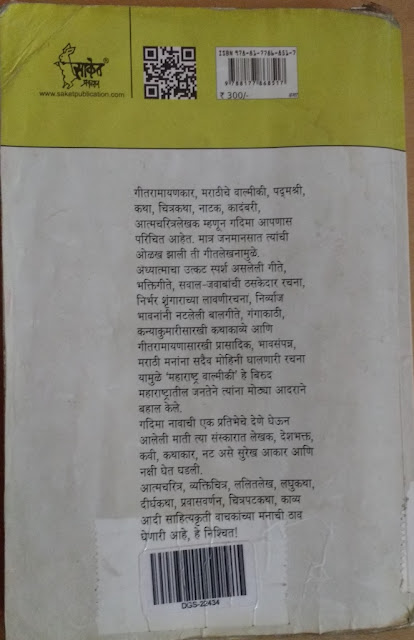 साकेत
प्रकाशन
www.saketpublication.com
ISBN 978-81-7786-851-7
9788177868517
₹ 300/-
गीतरामायणकार, मराठीचे वाल्मीकी, पद्मश्री,
कथा, चित्रकथा, नाटक, कादंबरी,
आत्मचरित्रलेखक म्हणून गदिमा आपणास
परिचित आहेत. मात्र जनमानसात त्यांची
ओळख झाली ती गीतलेखनामुळे.
अध्यात्माचा उत्कट स्पर्श असलेली गीते,
भक्तिगीते, सवाल-जवाबांची ठसकेदार रचना,
निर्भर शृंगाराच्या लावणीरचना, निर्व्याज
भावनांनी नटलेली बालगीते, गंगाकाठी,
कन्याकुमारीसारखी कथाकाव्ये आणि
गीतरामायणासारखी प्रासादिक, भावसंपन्न,
मराठी मनांना सदैव मोहिनी घालणारी रचना
यामुळे 'महाराष्ट्र वाल्मीकी' हे बिरुद
महाराष्ट्रातील जनतेने त्यांना मोठ्या आदराने
बहाल केले.
गदिमा नावाची एक प्रतिभेचे देणे घेऊन
आलेली माती त्या संस्कारात लेखक, देशभक्त,
कवी, कथाकार, नट असे सुरेख आकार आणि
नक्षी घेत घडली.
आत्मचरित्र, व्यक्तिचित्र, ललितलेख, लघुकथा,
दीर्घकथा, प्रवासवर्णन, चित्रपटकथा, काव्य
आदी साहित्यकृती वाचकांच्या मनाची ठाव
घेणारी आहे, हे निश्चित!
DGS-22434